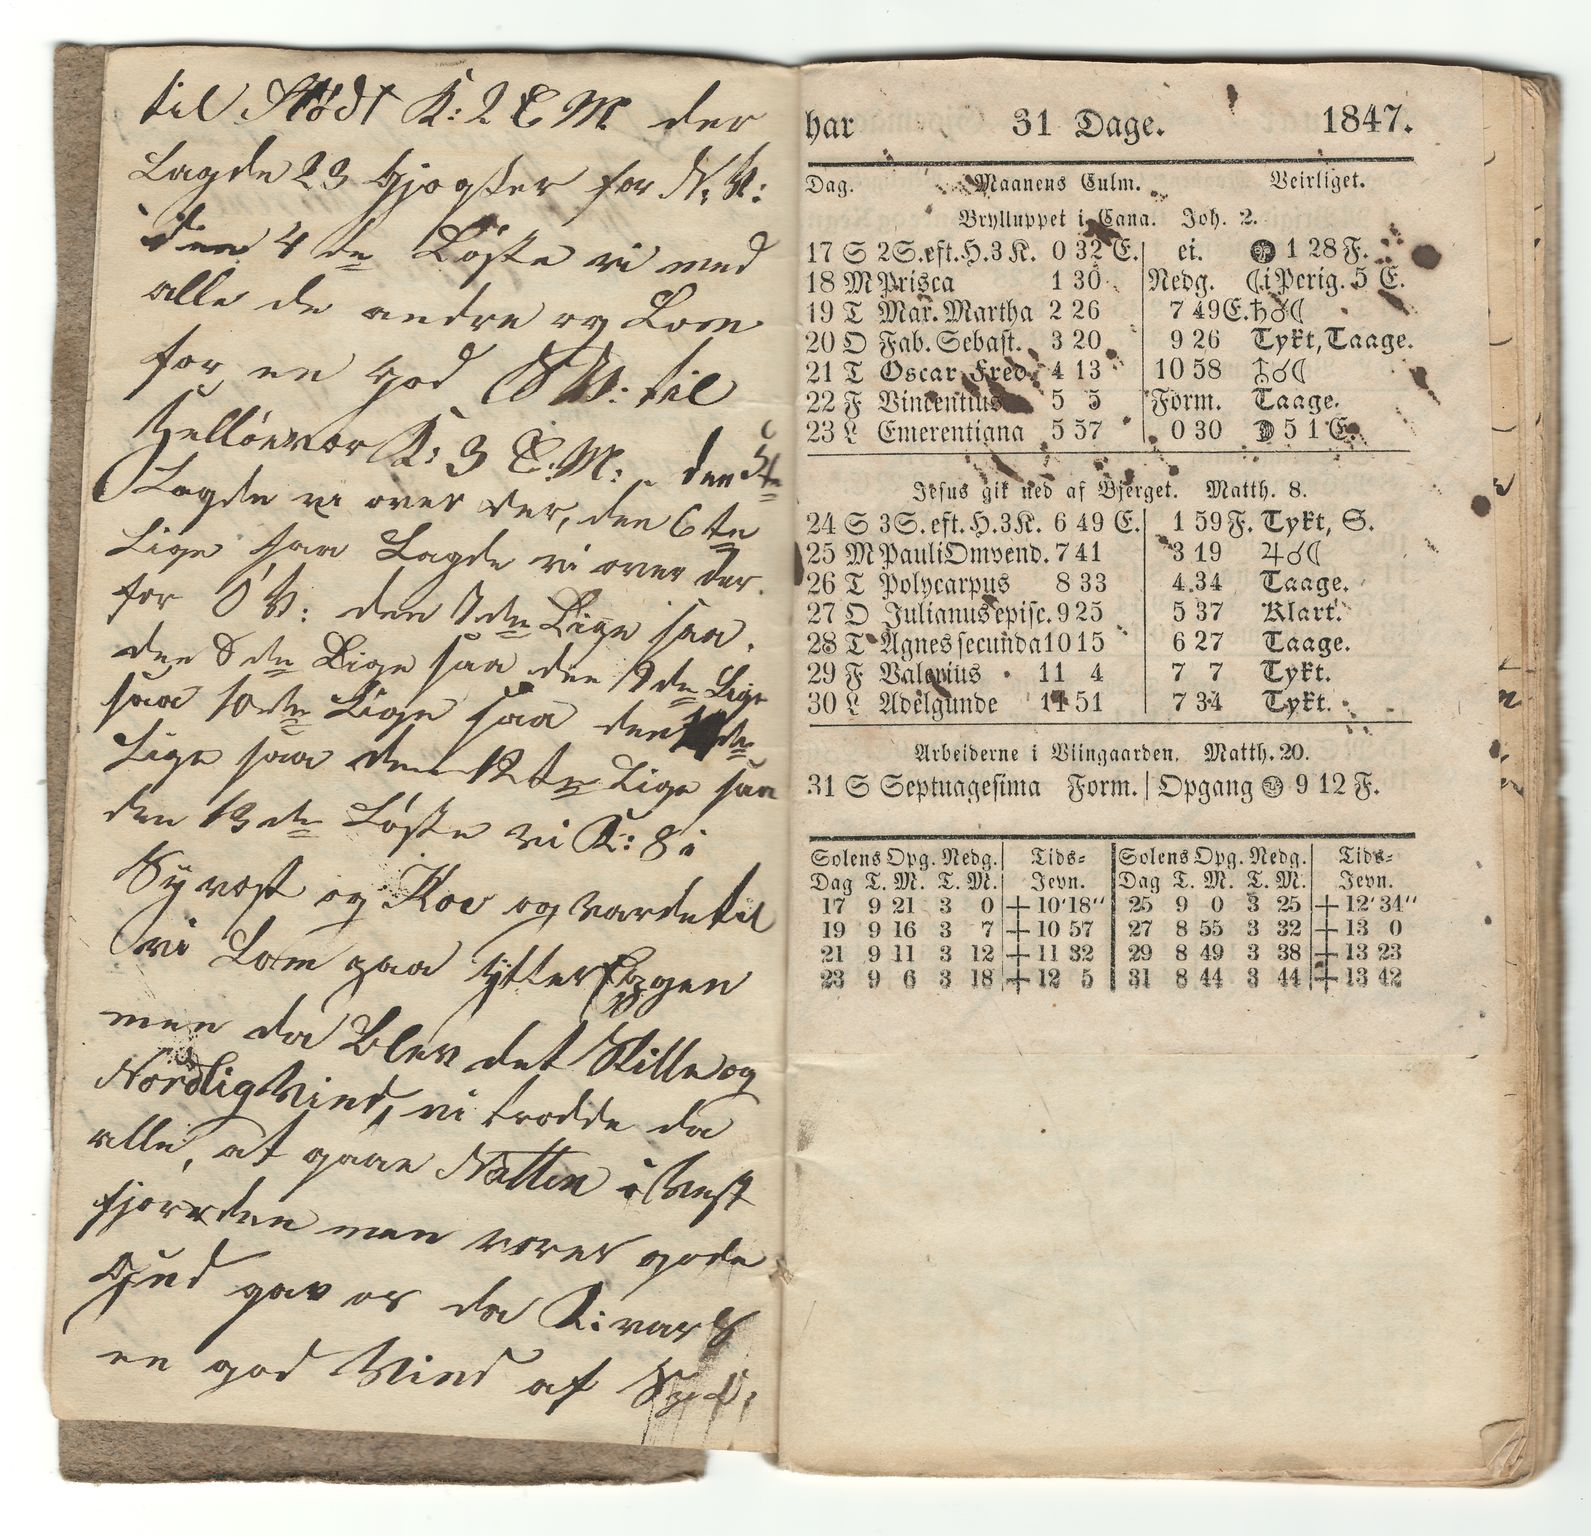 til Stødt K: 2 E M. der
Lagde 23 Gjogter for N. V:
den 4 de Løste vi med
alle de andre og Kom
for en god S V: til
Gellöevær K: 3 E. M: den 5te
Lagde vi over der, den 6 te
Lige saa Lagde vi over der.
for O V: den 7 de Lige saa.
den 8 de Lige saa den 9 de Lige
saa 10 de Lige saa den 11 de
Lige saa den 12 te Lige saa
den 13 de Løste vi K: 8 i
Syvost og Roe og varde til
vi Kom paa Ytter Eggen
men da Blev det Stille og
Nordlig Vind, vi trodde da
alle, at gaae Natten i Vest
fjorden men vores gode
Gud gav os da K: var 8
en god Vind af Syd.
har 31 Dage. 1847.
Dag. Maanens Culm. Veirliget.
Brylluppet i Cana. Joh. 2.
17 S 2S. eft. H. 3 K. 0 32 E. ei. 1 28 F.
18 M Prisca 1 30 Nedg. ☾ i Perig. 5 E.
19 T Mar. Martha 2 26 7 49 E. ♄☌☾
20 O Fab. Sebast. 3 20 9 26 Tykt, Taage.
21 T Oscar Fred. 4 13 10 58 ☌☾
22 F Vincentius 5 5 Form. Taage.
23 L Emerentiana 5 57 0 30 ☽ 5 1 E.
Jesus gik ned af Bjerget. Matth. 8.
24 S 3S. eft. H. 3 K. 6 49 E. 1 59 F. Tykt, S.
25 M Pauli Omvend. 7 41 3 19 ♃☌☾
26 T Polycarpus 8 33 4 34 Taage.
27 O Julianus episc. 9 25 5 37 Klart.
28 T Agnes secunda 10 15 6 27 Taage.
29 F Valerius 11 4 7 7 Tykt.
30 L Adelgunde 11 51 7 34 Tykt.
Arbeiderne i Viingaarden. Matth. 20.
31 S Septuagesima Form. Opgang 9 12 F.
Solens Opg. Nedg. Tids- Solens Opg. Nedg. Tids-
Dag T. M. T. M. Jevn. Dag T. M. T. M. Jevn.
17 9 21 3 0 + 10' 18" 25 9 0 3 25 + 12' 34"
19 9 16 3 7 + 10 57 27 8 55 3 32 + 13 0
21 9 11 3 12 + 11 32 29 8 49 3 38 + 13 23
23 9 6 3 18 + 12 5 31 8 44 3 44 + 13 42